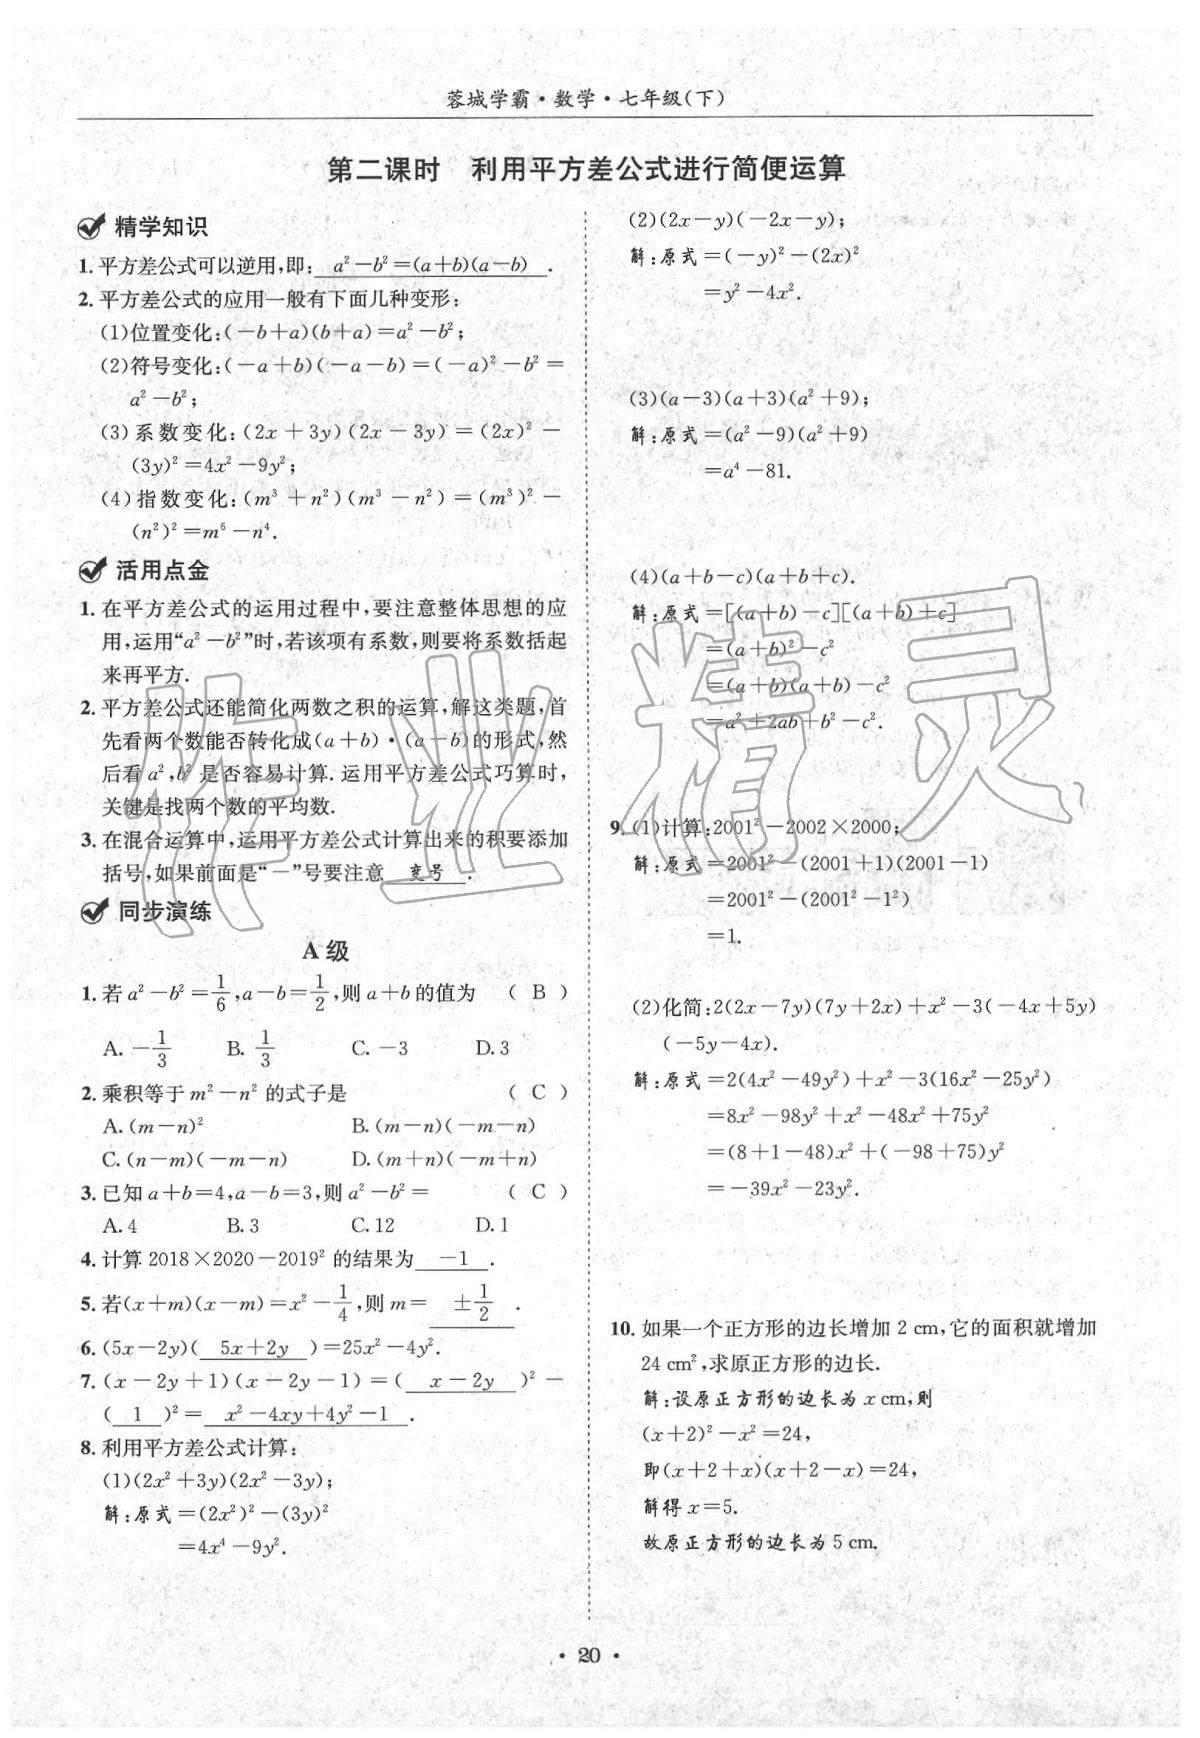 蓉城学霸·数学·七年级(下)
第二课时　利用平方差公式进行简便运算
精学知识
1. 平方差公式可以逆用,即: a²－b²＝(a＋b)(a－b) .
2. 平方差公式的应用一般有下面几种变形:
(1)位置变化:(－b＋a)(b＋a)＝a²－b²;
(2)符号变化:(－a＋b)(－a－b)＝(－a)²－b²＝
a²－b²;
(3)系数变化:(2x＋3y)(2x－3y)＝(2x)²－
(3y)²＝4x²－9y²;
(4)指数变化:(m³＋n²)(m³－n²)＝(m³)²－
(n²)²＝m⁶－n⁴.
活用点金
1. 在平方差公式的运用过程中,要注意整体思想的应
用,运用“a²－b²”时,若该项有系数,则要将系数括起
来再平方.
2. 平方差公式还能简化两数之积的运算,解这类题,首
先看两个数能否转化成(a＋b)·(a－b)的形式,然
后看a²,b²是否容易计算.运用平方差公式巧算时,
关键是找两个数的平均数.
3. 在混合运算中,运用平方差公式计算出来的积要添加
括号,如果前面是“－”号要注意 变号 .
同步演练
A级
1. 若a²－b²＝1/6,a－b＝1/2,则a＋b的值为 ( B )
A. －1/3 B. 1/3 C. －3 D. 3
2. 乘积等于m²－n²的式子是 ( C )
A. (m－n)² B. (m－n)(－m－n)
C. (n－m)(－m－n) D. (m＋n)(－m＋n)
3. 已知a＋b＝4,a－b＝3,则a²－b²＝ ( C )
A. 4 B. 3 C. 12 D. 1
4. 计算2018×2020－2019²的结果为 －1 .
5. 若(x＋m)(x－m)＝x²－1/4,则m＝ ±1/2 .
6. (5x－2y)( 5x＋2y )＝25x²－4y².
7. (x－2y＋1)(x－2y－1)＝( x－2y )²－
( 1 )²＝ x²－4xy＋4y²－1 .
8. 利用平方差公式计算:
(1)(2x²＋3y)(2x²－3y);
解:原式＝(2x²)²－(3y)²
＝4x⁴－9y².
(2)(2x－y)(－2x－y);
解:原式＝(－y)²－(2x)²
＝y²－4x².
(3)(a－3)(a＋3)(a²＋9);
解:原式＝(a²－9)(a²＋9)
＝a⁴－81.
(4)(a＋b－c)(a＋b＋c).
解:原式＝[(a＋b)－c][(a＋b)＋c]
＝(a＋b)²－c²
＝(a＋b)(a＋b)－c²
＝a²＋2ab＋b²－c².
9. (1)计算:2001²－2002×2000;
解:原式＝2001²－(2001＋1)(2001－1)
＝2001²－(2001²－1²)
＝1.
(2)化简:2(2x－7y)(7y＋2x)＋x²－3(－4x＋5y)
(－5y－4x).
解:原式＝2(4x²－49y²)＋x²－3(16x²－25y²)
＝8x²－98y²＋x²－48x²＋75y²
＝(8＋1－48)x²＋(－98＋75)y²
＝－39x²－23y².
10. 如果一个正方形的边长增加2 cm,它的面积就增加
24 cm²,求原正方形的边长.
解:设原正方形的边长为x cm,则
(x＋2)²－x²＝24,
即(x＋2＋x)(x＋2－x)＝24,
解得x＝5.
故原正方形的边长为5 cm.
· 20 ·
作业精灵